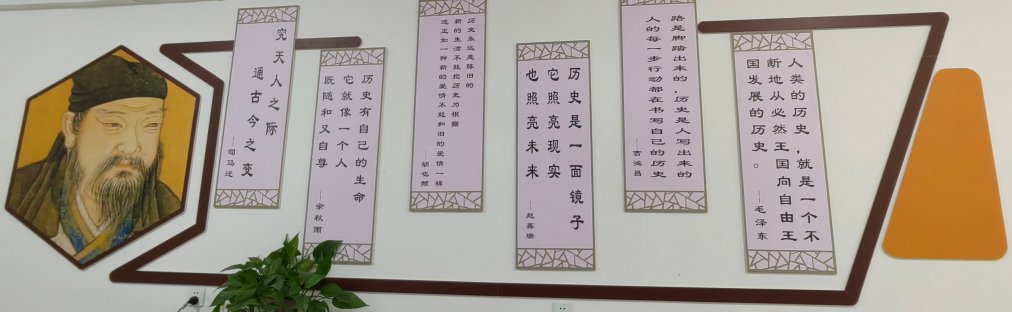 究天人之际
通古今之变
——司马迁
历史有自己的生命
它就像一个人
既随和又自尊
——余秋雨
历史永远是陈旧的
新的生活不能把历史为根据
这正如一种新的爱情不能和旧的爱情一样
——胡也频
历史是一面镜子
它照亮现实
也照亮未来
——赵鑫珊
路是脚踏出来的，历史是人写出来的
人的每一步行动都在书写自己的历史
——吉鸿昌
人类的历史，就是一个不
断地从必然王国向自由王
国发展的历史。
——毛泽东